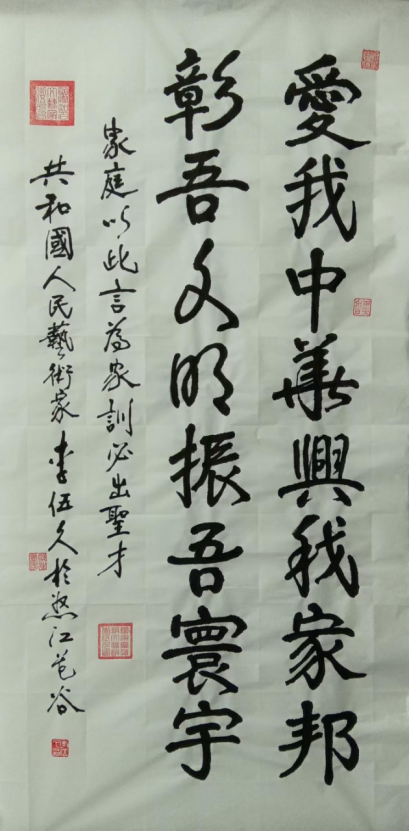 愛我中華興我家邦
彰吾文明振吾寰宇
家庭以此言為家訓必出聖才
共和國人民藝術家李伍久於怒江苍谷